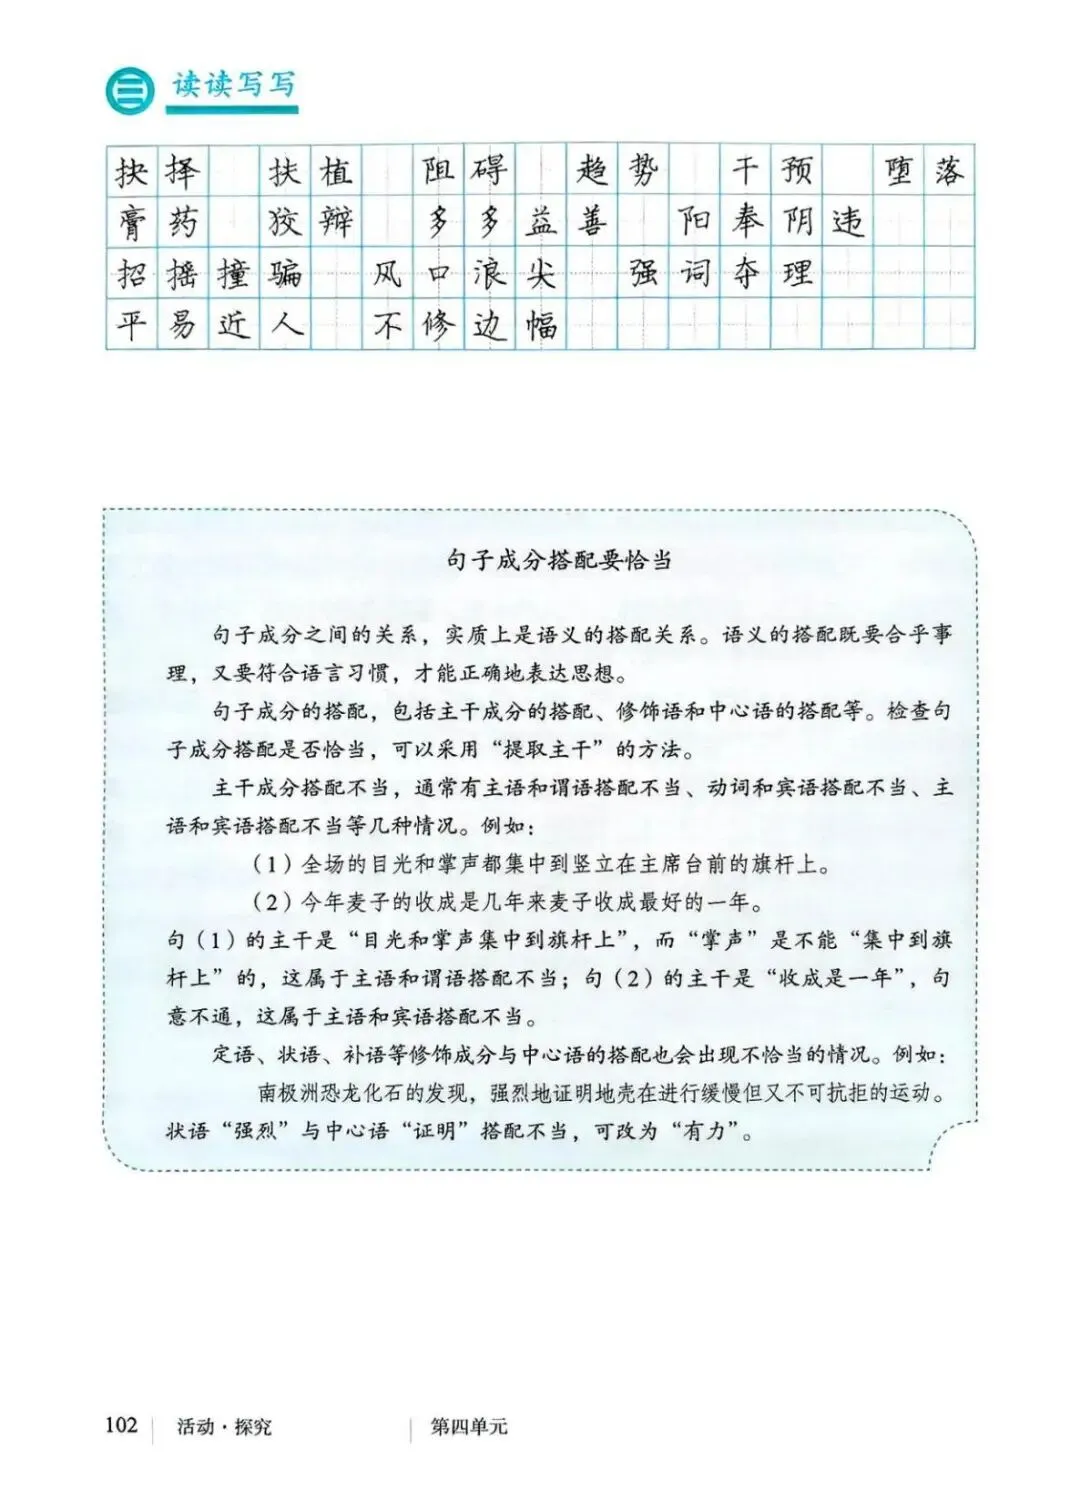 三 读读写写
抉择 扶植 阻碍 趋势 干预 堕落
膏药 狡辩 多多益善 阳奉阴违
招摇撞骗 风口浪尖 强词夺理
平易近人 不修边幅
句子成分搭配要恰当
句子成分之间的关系，实质上是语义的搭配关系。语义的搭配既要合乎事
理，又要符合语言习惯，才能正确地表达思想。
句子成分的搭配，包括主干成分的搭配、修饰语和中心语的搭配等。检查句
子成分搭配是否恰当，可以采用“提取主干”的方法。
主干成分搭配不当，通常有主语和谓语搭配不当、动词和宾语搭配不当、主
语和宾语搭配不当等几种情况。例如：
（1）全场的目光和掌声都集中到竖立在主席台前的旗杆上。
（2）今年麦子的收成是几年来麦子收成最好的一年。
句（1）的主干是“目光和掌声集中到旗杆上”，而“掌声”是不能“集中到旗
杆上”的，这属于主语和谓语搭配不当；句（2）的主干是“收成是一年”，句
意不通，这属于主语和宾语搭配不当。
定语、状语、补语等修饰成分与中心语的搭配也会出现不恰当的情况。例如：
南极洲恐龙化石的发现，强烈地证明地壳在进行缓慢但又不可抗拒的运动。
状语“强烈”与中心语“证明”搭配不当，可改为“有力”。
102 活动·探究 第四单元